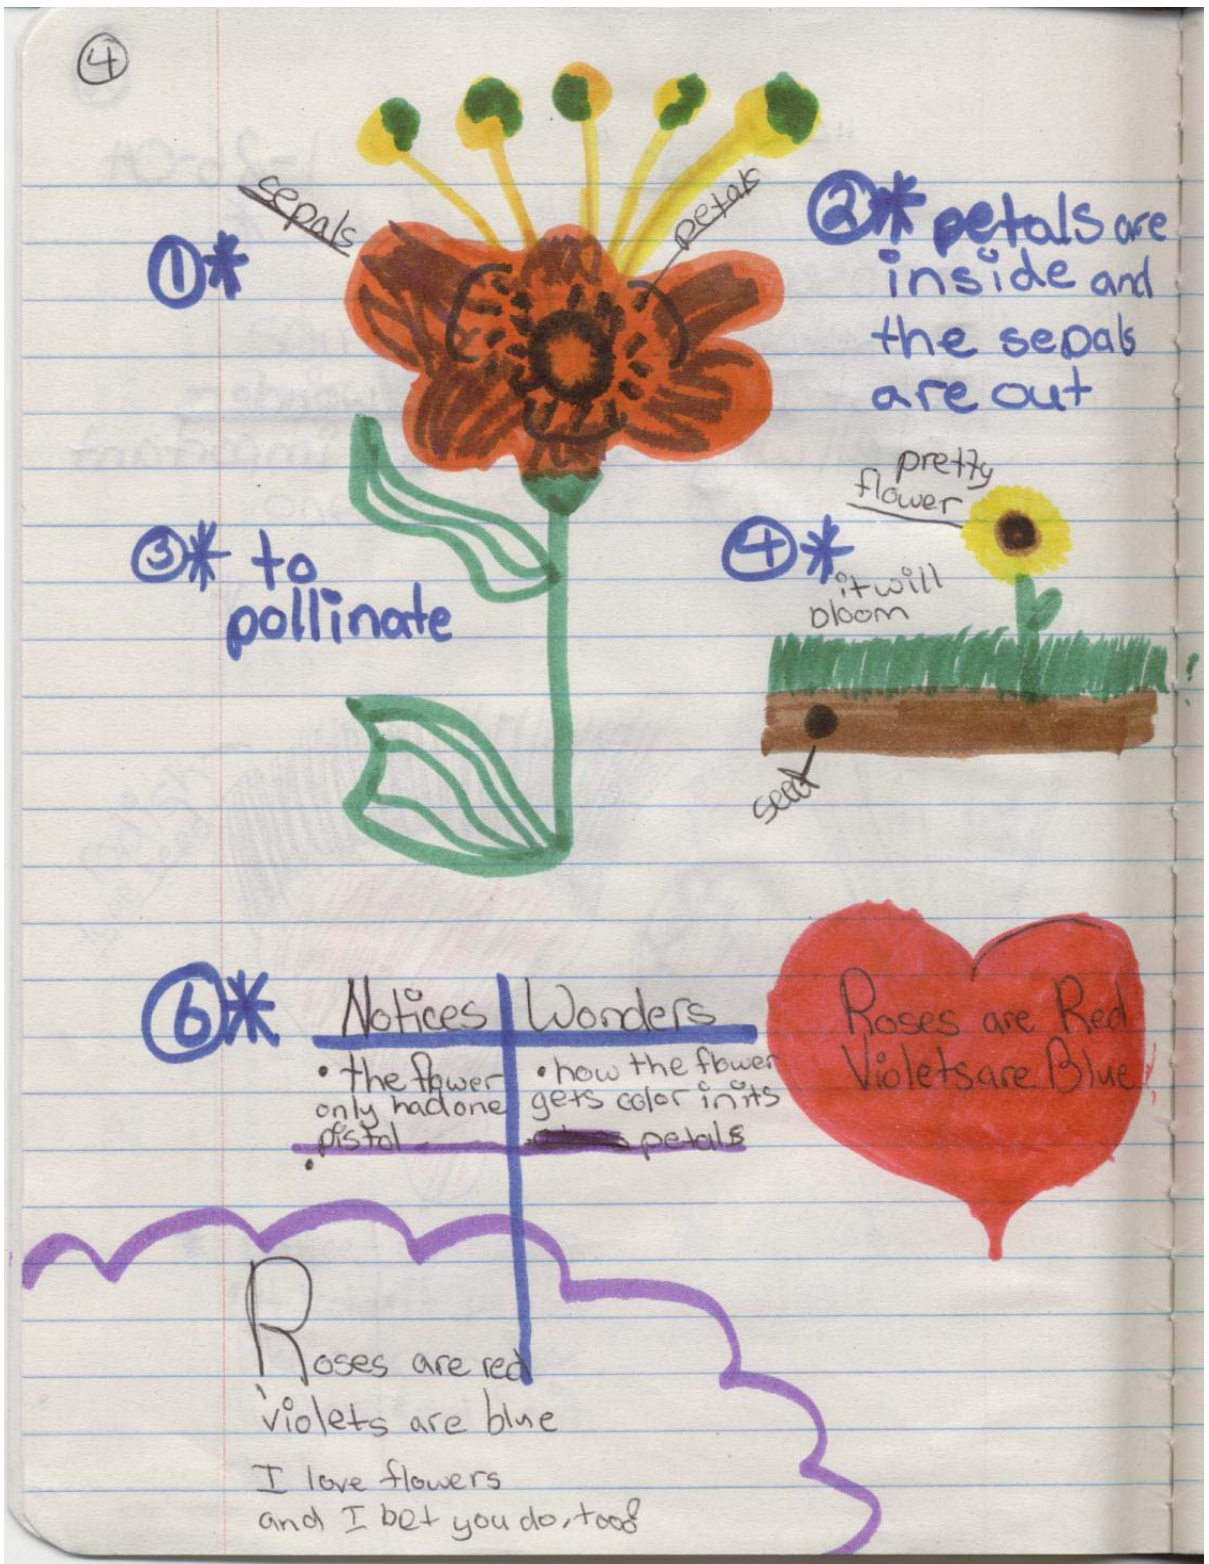 4
sepals
petals
1*
2* petals are
inside and
the sepals
are out
pretty
flower
3* to
pollinate
4*
it will
bloom
seed
6*
Notices
Wonders
• the flower
only had one
pistal
•
• how the flower
gets color in its
petals
Roses are Red
Violets are Blue
Roses are red
violets are blue
I love flowers
and I bet you do, too!